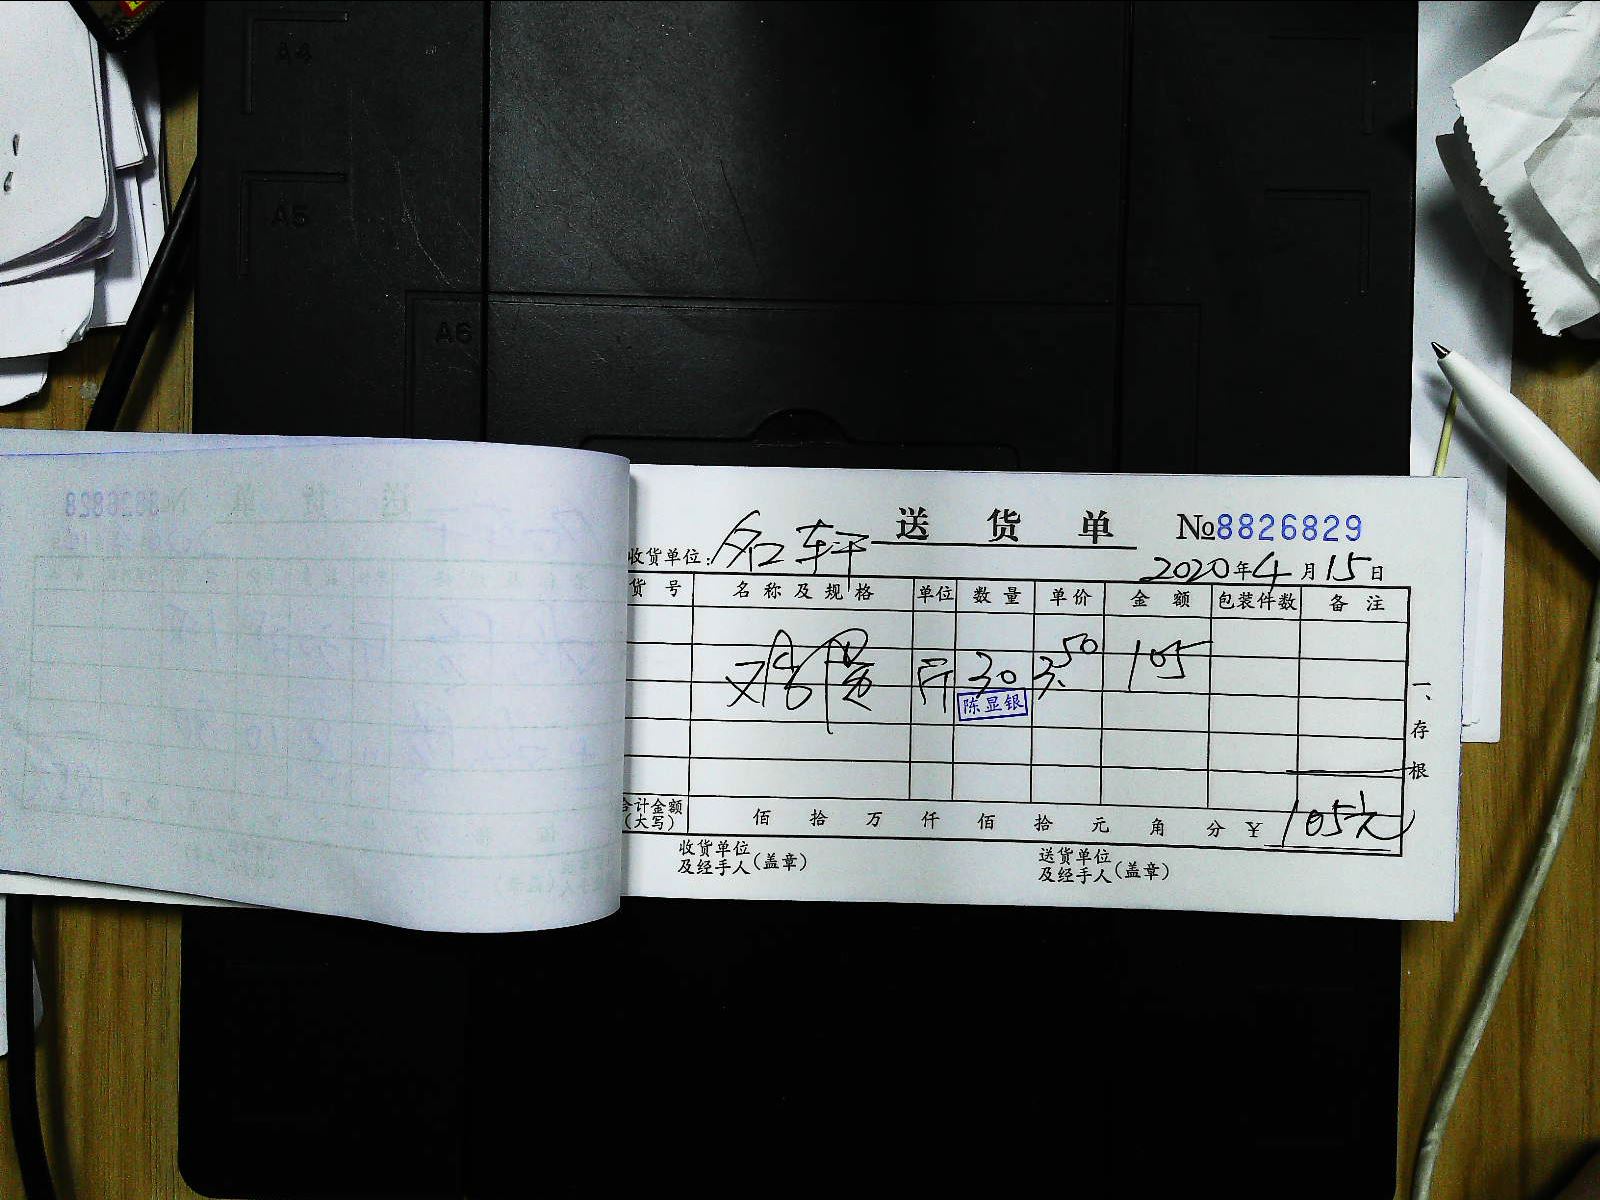 A4
A5
A6
送 货 单 №8826829
收货单位：名轩 2020年4月15日
货号 名称及规格 单位 数量 单价 金额 包装件数 备注
鸡蛋 斤 30 3.50 105
陈显银
一、存根
合计金额（大写） 佰 拾 万 仟 佰 拾 元 角 分 ￥105元
收货单位及经手人（盖章） 送货单位及经手人（盖章）